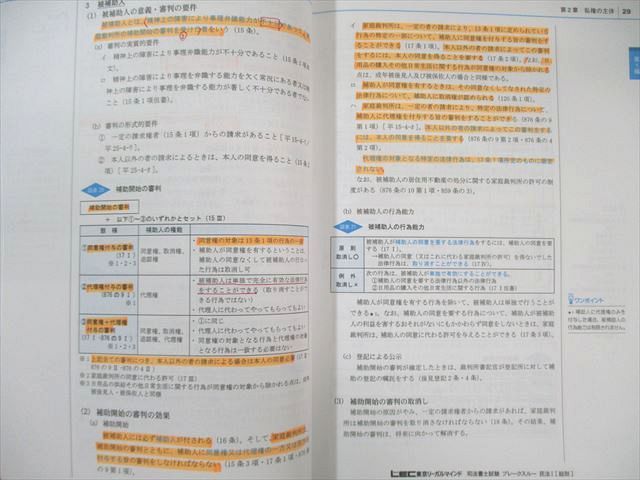 3 被補助人
(1) 被補助人の意義・審判の要件
被補助人とは、精神上の障害により事理弁識能力が不十
所の補助開始の審判を受けた者をいう(15条)。
(a) 審判の実質的要件
イ 精神上の障害により事理弁識能力が不十分であること(15条1
項)
ロ 精神上の障害により事理を弁識する能力を欠く常況にある者又は精
神上の障害により事理を弁識する能力が著しく不十分である者でない
こと(15条1項但書)
(b) 審判の形式的要件
① 一定の請求権者(15条1項)からの請求があること[平15-4-イ,
平25-4-オ]。
② 本人以外の者の請求によるときは、本人の同意を得ること(15条2
項)[平25-4-オ]。
図表20 補助開始の審判
補助開始の審判
+ 以下①~③のいずれかとセット(15 III)
種類
補助人の権能
①同意権付与の審判
(17 I)
※1・2・3
同意権、取消権、
追認権
・同意権の対象は13条1項の行為の一部
・補助人が同意権を有するということは、
補助人の同意なくして被補助人の行なっ
た行為は取消し可
②代理権付与の審判
(876の9 I)
※1
代理権
・被補助人は単独で完全に有効な法律行為
をすることができる(取り消すことがで
きる行為ではない)
・代理人に代わってやってもらってもよい
③同意権+代理権
付与の審判
(17 I・876の9 I)
※1・2・3
同意権、取消権、
追認権、代理権
・①に同じ
・代理人に代わってやってもらってもよい
・同意権の対象となる行為と代理権の対象
となる行為が一致する必要はない
※1 上記全ての審判につき、本人以外の者の請求による場合は本人の同意必要(17 II・876
の9 II・876の4 II)
※2 家庭裁判所の同意に代わる許可(17 III)
※3 日用品の供給その他日常生活に関する行為が同意権の対象から除かれる点は、成年
被後見人・被保佐人と同様
(2) 補助開始の審判の効果
(a) 補助開始
被補助人には必ず補助人が付される(16条)。そして、家庭裁判所は、
(15条3項・17条1項・876条
の9第1項)。
第2章 私権の主体 29
イ 家庭裁判所は、一定の者の請求により13条1項に定められている
行為の特定の一部について、補助人に同意権を付与する旨の審判をする
ことができる(17条1項)。本人以外の者の請求によってこの審判
をするには、本人の同意を得ることを要する(17条2項)。なお、日
用品の購入その他日常生活に関する行為が同意権の対象から除かれる
点は、成年被後見人及び被保佐人の場合と同様である。
ロ 補助人が同意権を有するときは、その同意なくしてなされた特定の
法律行為について、補助人に取消権が認められる(120条1項)。
ハ 家庭裁判所は、一定の者の請求により、特定の法律行為について、
補助人に代理権を付与する旨の審判をすることができる(876条の9
第1項)[平15-4-エ]。本人以外の者の請求によってこの審判をする
には、本人の同意を得ることを要する(876条の9第2項・876条の4
第2項)。
代理権の対象となる特定の法律行為は、13条1項所定のものに限定
されない。
なお、被補助人の居住用不動産の処分に関する家庭裁判所の許可の制
度がある(876条の10第1項・859条の3)。
(b) 被補助人の行為能力
図表21 被補助人の行為能力
原則
取消し○
被補助人が補助人の同意を要する法律行為をするには、補助人の同意を要
する(17 I)。
→補助人の同意(又はこれに代わる家庭裁判所の許可)を得ないでした
法律行為は、取り消すことができる(17 IV)。
例外
取消し×
次の行為は、被補助人が単独で有効にすることができる。
①補助人の同意を要する法律行為以外の法律行為
②日用品の購入その他日常生活に関する行為(17 I 但書)
補助人が同意権を有する行為を除いて、被補助人は単独で行うことが
できる★1。なお、補助人の同意を要する行為について、補助人が被補助
人の利益を害するおそれがないにもかかわらず同意をしないときは、家庭
裁判所は、補助人の同意に代わる許可を与えることができる(17条3項)。
(c) 登記による公示
補助開始の審判が確定したときは、裁判所書記官が登記所に対して補
助の登記の嘱託をする(後見登記2条・4条)。
(3) 補助開始の審判の取消し
補助開始の原因がやみ、一定の請求権者からの請求があれば、家庭裁判所
は補助開始の審判を取り消さなければならない(18条)。その結果、補助
開始の審判は、将来に向かって解消する。
ワンポイント
★1 補助人に代理権のみを
付与した場合は、被補助人の
行為能力は制限されません。
LEC東京リーガルマインド 司法書士試験 ブレークスルー 民法I[総則]